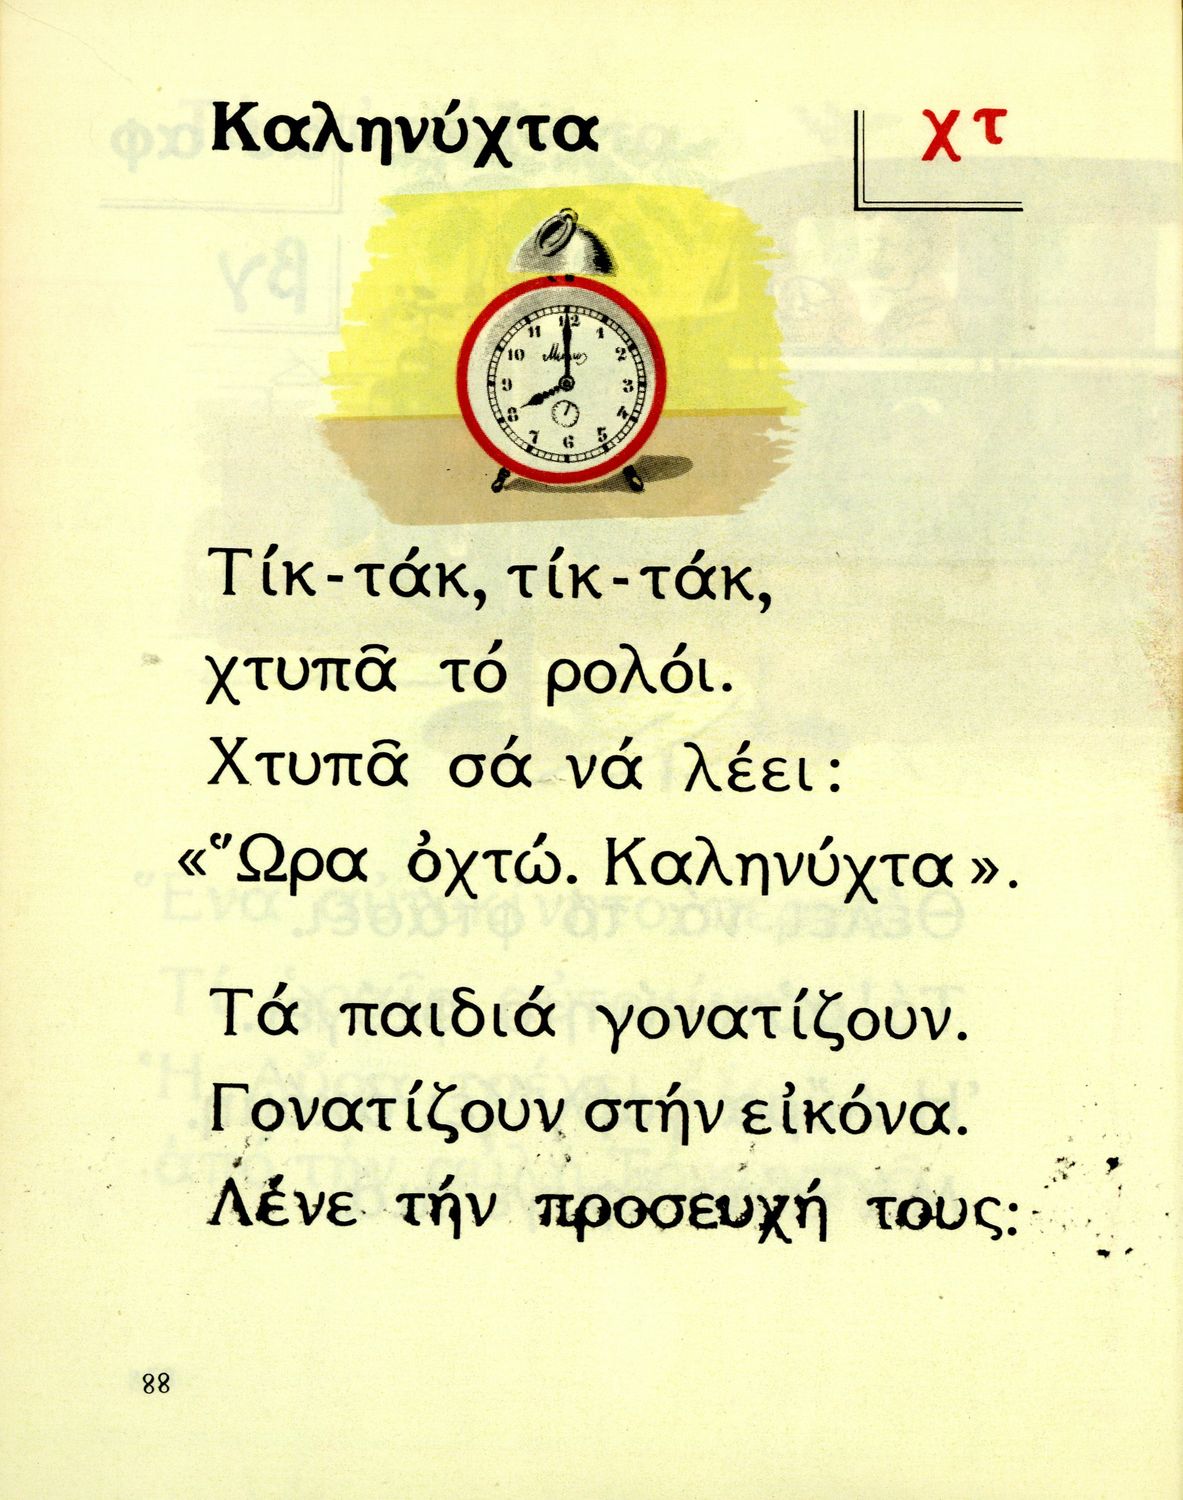 Καληνύχτα
χτ
11 12 1
10 2
9 3
8 4
7 6 5
Τίκ-τάκ, τίκ-τάκ,
χτυπᾶ τό ρολόι.
Χτυπᾶ σά νά λέει:
«Ὥρα ὀχτώ. Καληνύχτα».
Τά παιδιά γονατίζουν.
Γονατίζουν στήν εἰκόνα.
Λένε τήν προσευχή τους:
88